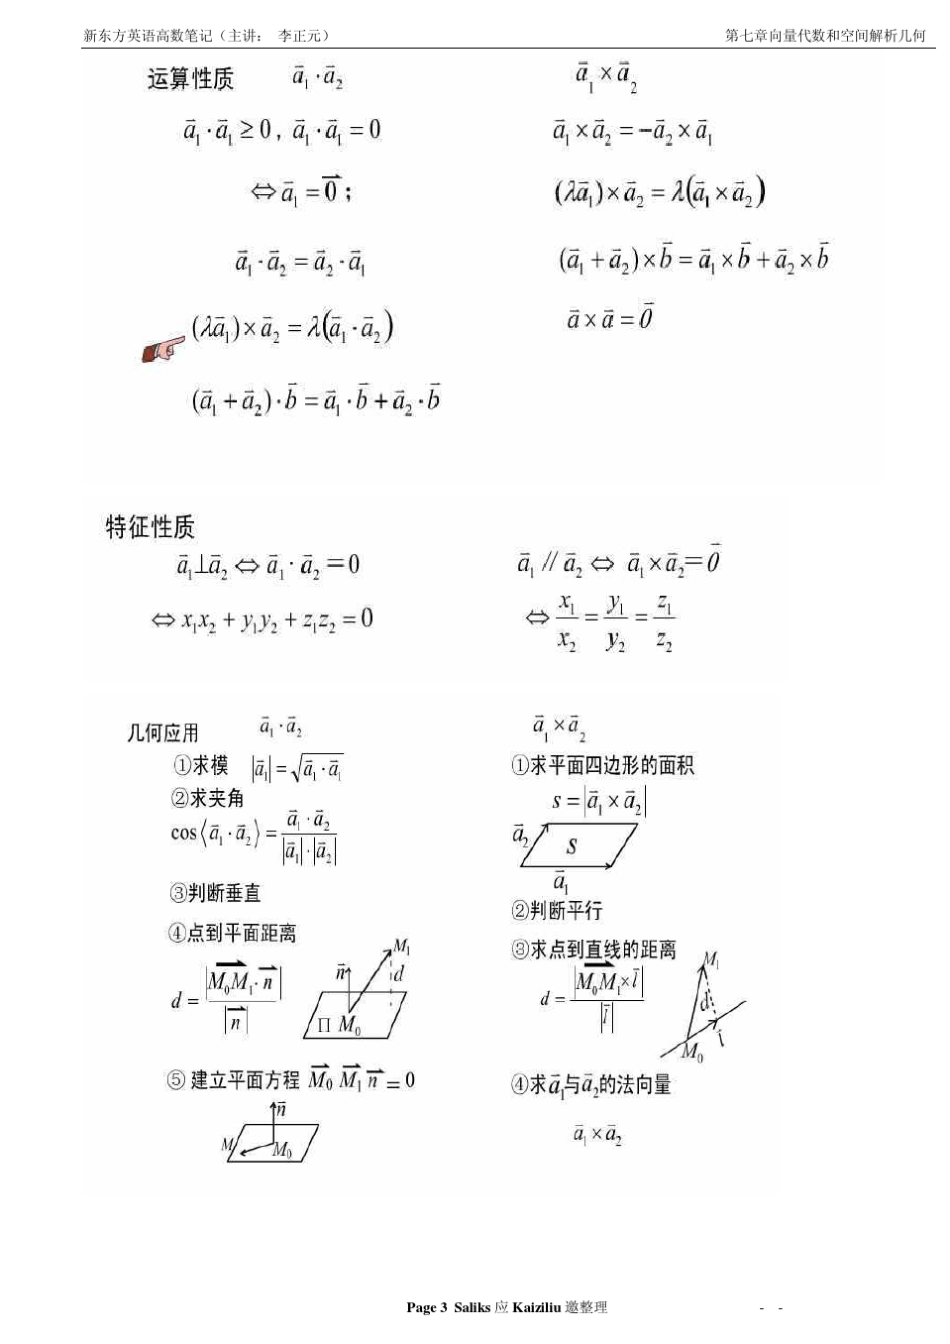 新东方英语高数笔记（主讲： 李正元） 第七章向量代数和空间解析几何
运算性质 a⃗₁·a⃗₂ a⃗₁×a⃗₂
a⃗₁·a⃗₁≥0，a⃗₁·a⃗₁=0 a⃗₁×a⃗₂=-a⃗₂×a⃗₁
⇔a⃗₁=0⃗； (λa⃗₁)×a⃗₂=λ(a⃗₁×a⃗₂)
a⃗₁·a⃗₂=a⃗₂·a⃗₁ (a⃗₁+a⃗₂)×b⃗=a⃗₁×b⃗+a⃗₂×b⃗
(λa⃗₁)×a⃗₂=λ(a⃗₁·a⃗₂) a⃗×a⃗=0⃗
(a⃗₁+a⃗₂)·b⃗=a⃗₁·b⃗+a⃗₂·b⃗
特征性质
a⃗₁⊥a⃗₂⇔a⃗₁·a⃗₂=0 a⃗₁∥a⃗₂⇔a⃗₁×a⃗₂=0⃗
⇔x₁x₂+y₁y₂+z₁z₂=0 ⇔x₁/x₂=y₁/y₂=z₁/z₂
几何应用 a⃗₁·a⃗₂
①求模 |a⃗₁|=√(a⃗₁·a⃗₁)
②求夹角
cos⟨a⃗₁·a⃗₂⟩=a⃗₁·a⃗₂/|a⃗₁|·|a⃗₂|
③判断垂直
④点到平面距离
d=|M₀M₁·n⃗|/|n⃗|
n⃗ M₁ d Π M₀
⑤建立平面方程 M₀M₁n⃗=0
n⃗ M M₀
a⃗₁×a⃗₂
①求平面四边形的面积
s=|a⃗₁×a⃗₂|
a⃗₂ S
a⃗₁
②判断平行
③求点到直线的距离
d=|M₀M₁×l⃗|/|l⃗|
M₁ d l⃗ M₀
④求a⃗₁与a⃗₂的法向量
a⃗₁×a⃗₂
Page 3 Saliks 应 Kaiziliu 邀整理 - -